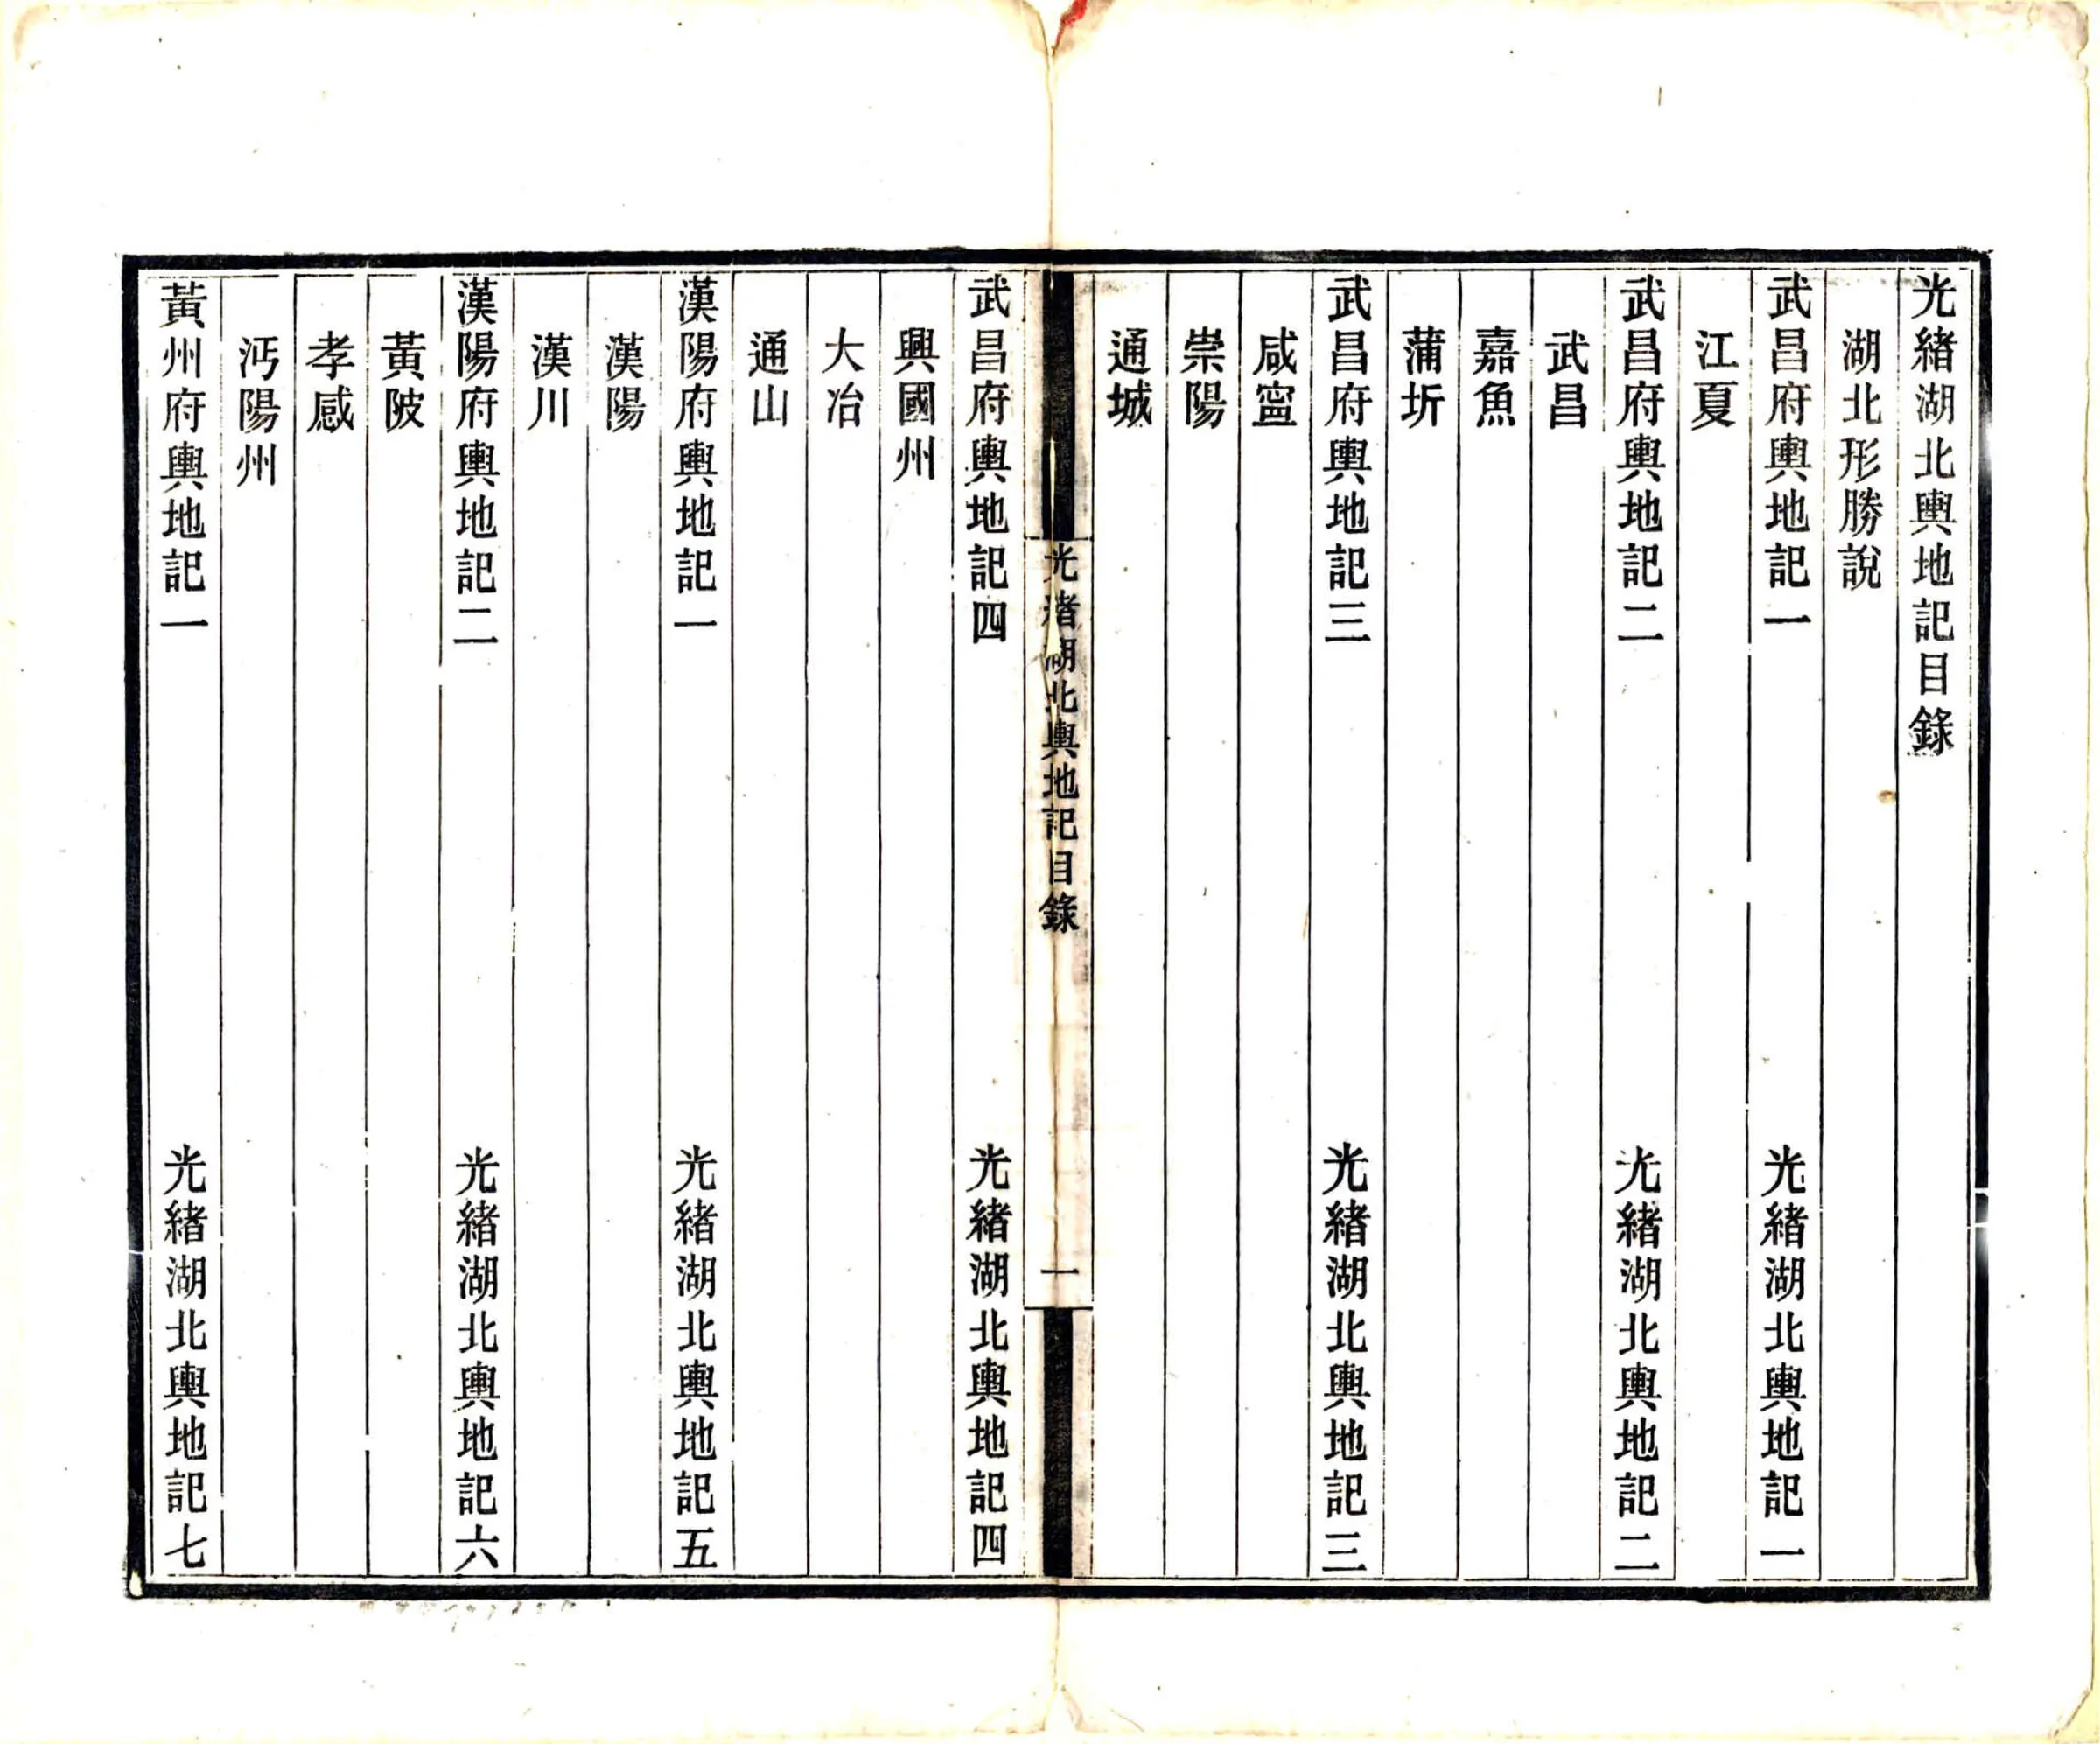 光緒湖北輿地記目錄
湖北形勝說
武昌府輿地記一　光緒湖北輿地記一
江夏
武昌府輿地記二　光緒湖北輿地記二
武昌
嘉魚
蒲圻
武昌府輿地記三　光緒湖北輿地記三
咸寧
崇陽
通城
光緒湖北輿地記目錄　一
武昌府輿地記四　光緒湖北輿地記四
興國州
大冶
通山
漢陽府輿地記一　光緒湖北輿地記五
漢陽
漢川
漢陽府輿地記二　光緒湖北輿地記六
黃陂
孝感
沔陽州
黃州府輿地記一　光緒湖北輿地記七